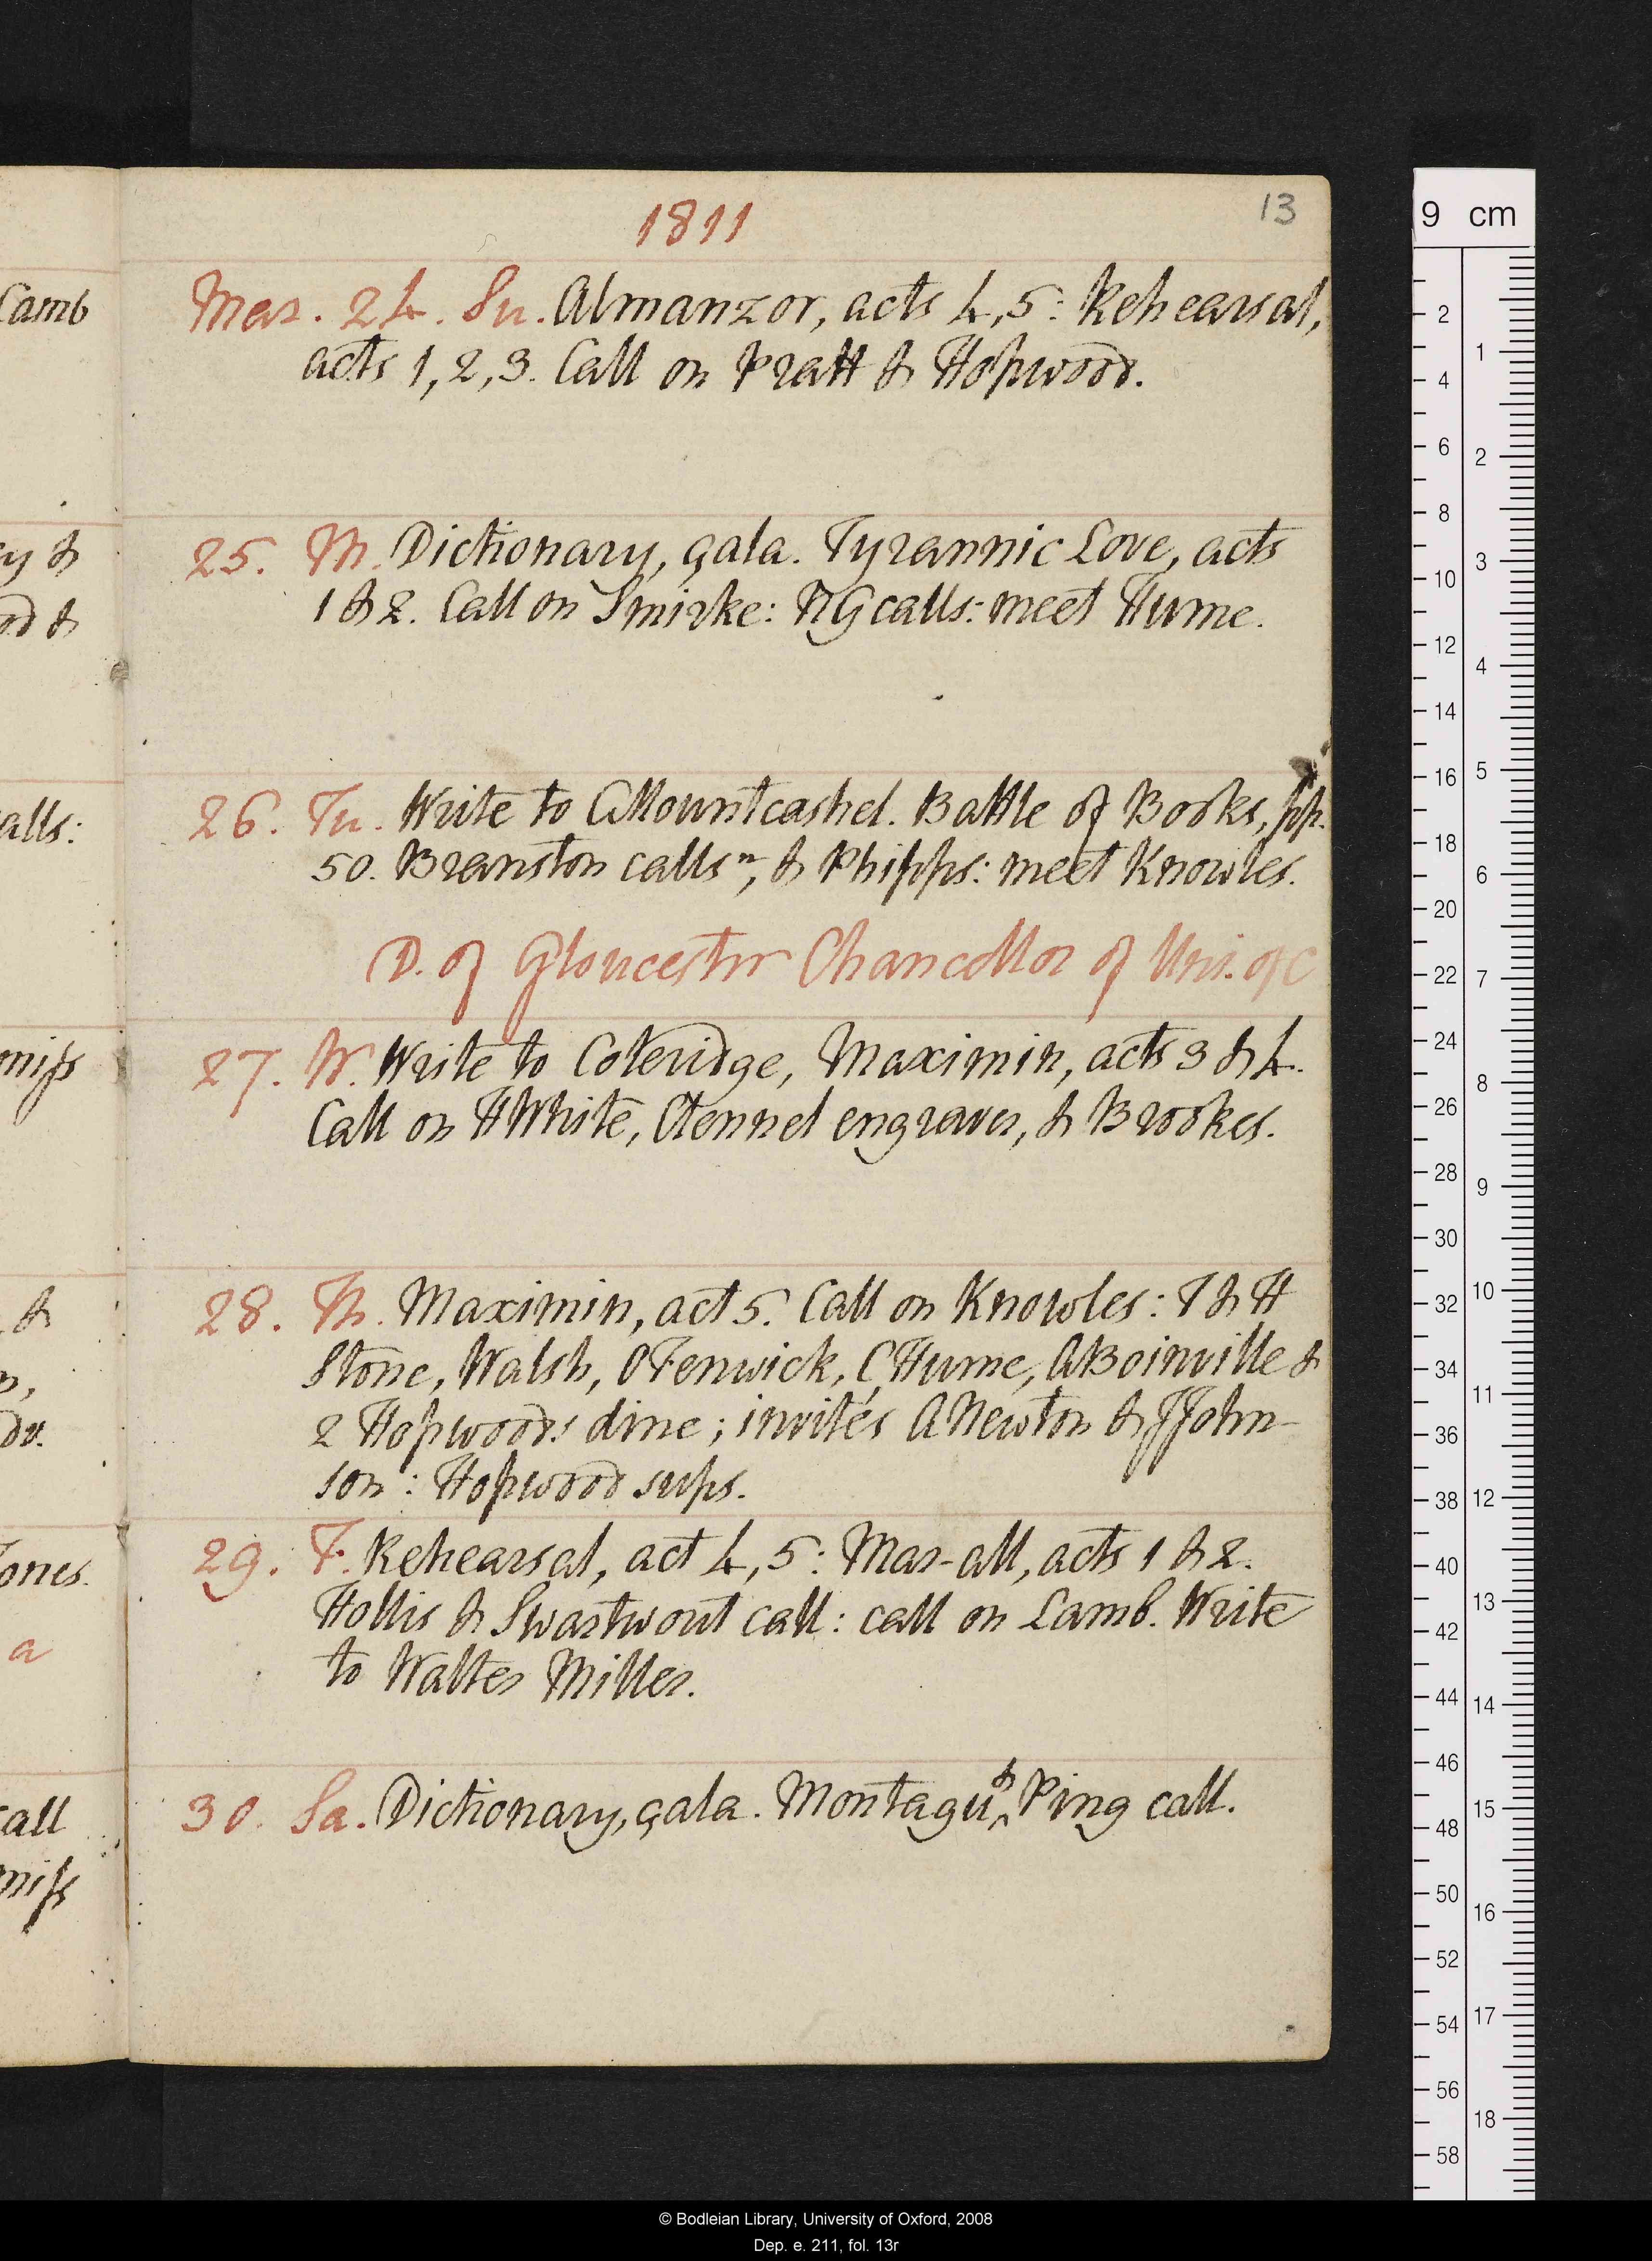 1811
13
Mar. 24. Su. Almanzor, acts 4, 5: Rehearsal,
acts 1, 2, 3. Call on Pratt & Hopwood.
25. M. Dictionary, gala. Tyrannic Love, acts
1 & 2. Call on Smirke: NG calls: meet Hume.
26. Tu. Write to Mountcashel. Battle of Books, pp.
50. Branston calls n, & Phipps: meet Knowles.
D. of Gloucester Chancellor of Uni. of C
27. W. Write to Coleridge, Maximin, acts 3 & 4.
Call on H White, Clennel engraver, & Brookes.
28. Th. Maximin, act 5. Call on Knowles: T & H
Stone, Walsh, O Fenwick, C Hume, A Boinville &
2 Hopwoods dine; invités A Newton & J John-
son: Hopwood sups.
29. F. Rehearsal, act 4, 5: Mar-all, acts 1 & 2.
Hollis & Swartwout call: call on Lamb. Write
to Walter Miller.
30. Sa. Dictionary, gala. Montagu & Ping call.
Camb
y &
od &
alls:
miss
&
ones.
a
call
miss
9 cm
2
4
6
8
10
12
14
16
18
20
22
24
26
28
30
32
34
36
38
40
42
44
46
48
50
52
54
56
58
1
2
3
4
5
6
7
8
9
10
11
12
13
14
15
16
17
18
© Bodleian Library, University of Oxford, 2008
Dep. e. 211, fol. 13r